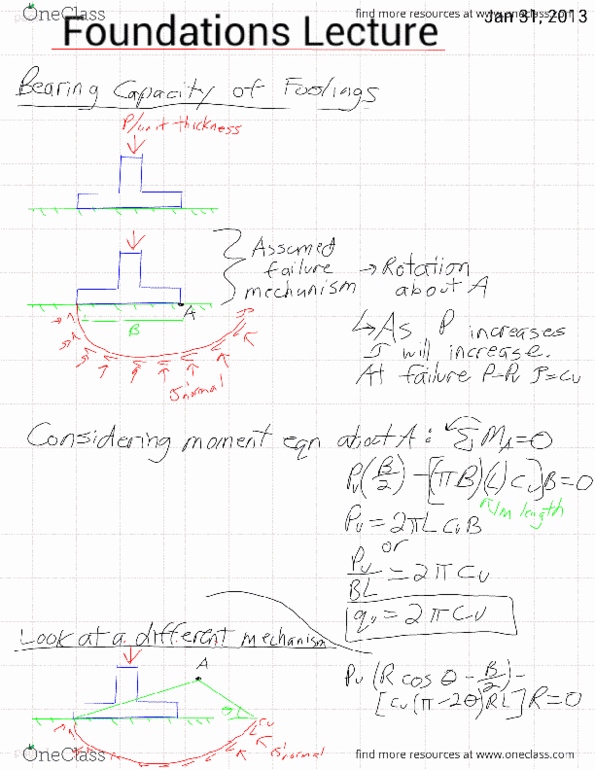 OneClass
find more resources at www.oneclass.com
Jan 31, 2013
Foundations Lecture
Bearing Capacity of Footings
P/unit thickness
Assumed
failure
mechanism
→ Rotation
about A
A
B
↳ As P increases
τ will increase.
At failure P=Pu τ=cu
σnormal
Considering moment eqn about A: ΣMA=0
Pu(B/2) - [(πB)(L) cu]B=0
1m length
Pu = 2πL cu B
or
Pu/BL = 2πcu
qu = 2πcu
Look at a different mechanism
A
θ
cu
σnormal
Pu (R cos θ - B/2) -
[cu(π-2θ)RL]R=0
OneClass
find more resources at www.oneclass.com